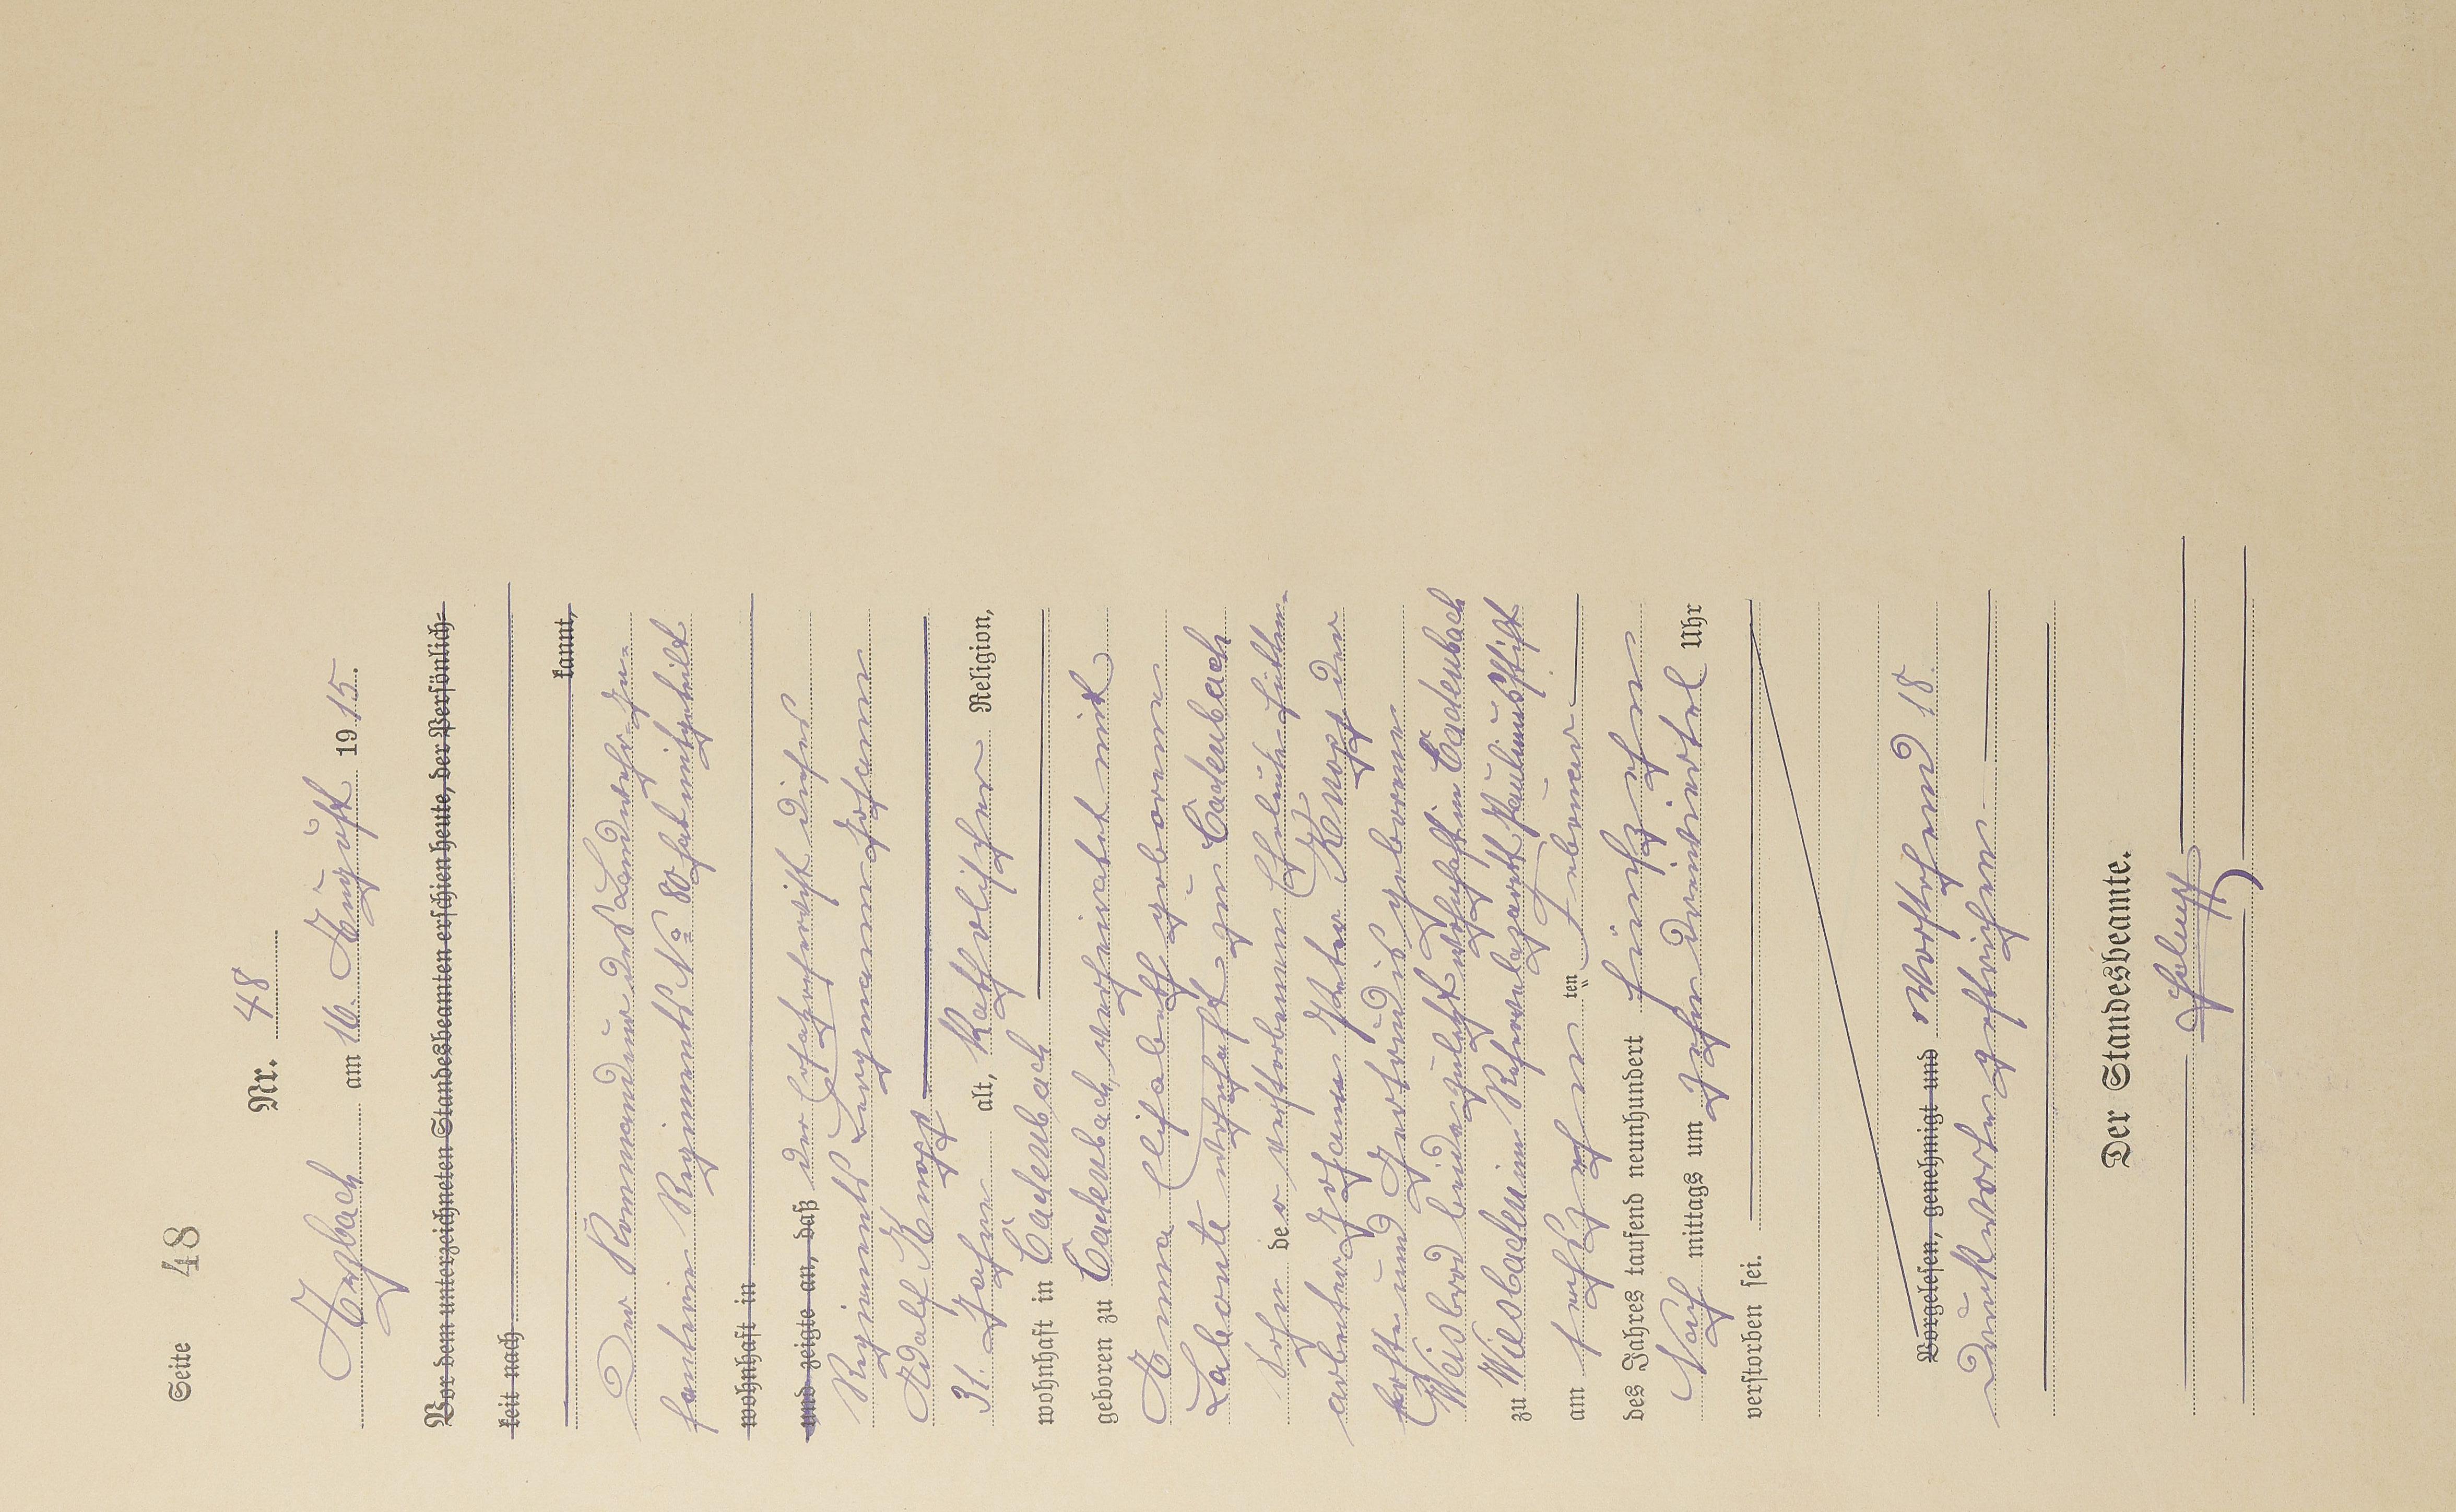 Seite 48
Nr. 48
Arzbach am 16. August 1915.
Vor dem unterzeichneten Standesbeamten erschien heute, der Persönlich-
keit nach
kannt,
Der Kommandeur des Landwehr-In-
fanterie Regiments No 80 hat mitgeteilt
wohnhaft in
und zeigte an, daß der Ersatzreservist dieses
Regiments Bergmann Johann
Adolf Knopf
31 Jahre alt, katholischer Religion,
wohnhaft in Cadenbach
geboren zu Cadenbach, verheiratet mit
Anna Elisabeth geborenen
Labonte wohnhaft zu Cadenbach
Sohn der verstorbenen Eheleute Hütten-
arbeiter Johann Peter Knopf der
erste und Gertrudis geborenen
Weisbrod beide zuletzt wohnhaft in Cadenbach
zu Wiesbaden im Reservelazarett Paulinenstift
am sechszehn ten Februar
des Jahres tausend neunhundert fünfzehn
Nach mittags um zehn dreiviertel Uhr
verstorben sei.
Vorgelesen, genehmigt und Vorstehend 18
Druckworte gestrichen
Der Standesbeamte.